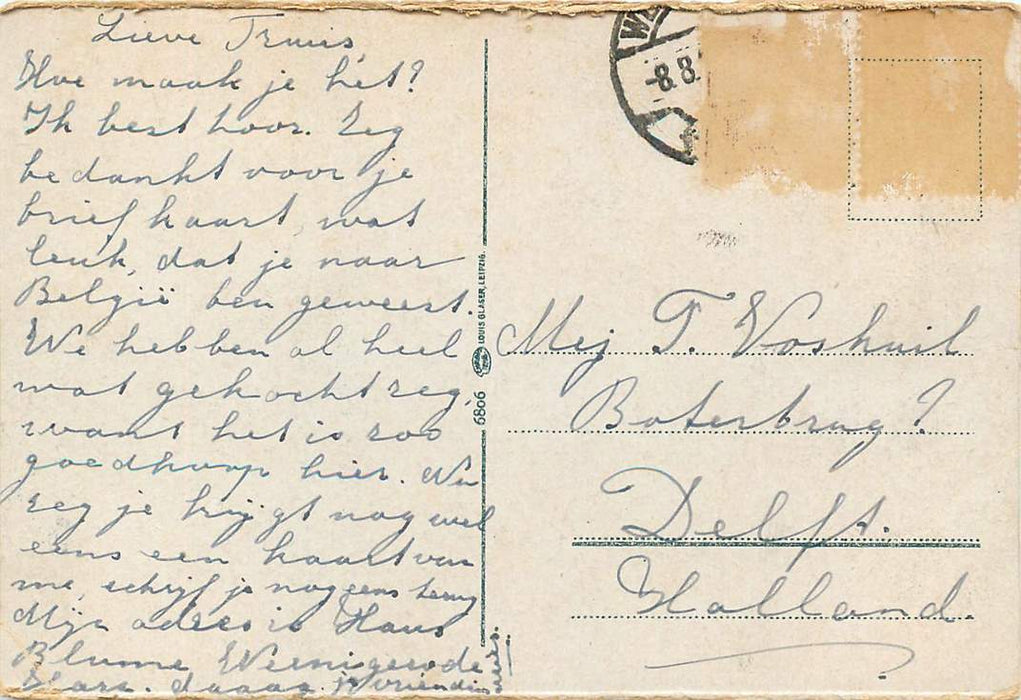 Lieve Truus,
Hoe maak je het?
Ik best hoor. Zeg
bedankt voor je
briefkaart, wat
leuk, dat je naar
België ben geweest.
We hebben al heel
wat gekocht zeg,
want het is zoo
goedkoop hier. Nu
zeg je krijgt nog wel
eens een kaart van
me, schrijf je nog eens terug
Mijn adres is Haus
Blume Wernigerode
Harz. daaaa je vriendin
WE
-8.8.
LOUIS GLASER, LEIPZIG.
6806
Mej T. Voskuil
Boterbrug?
Delft.
Holland.